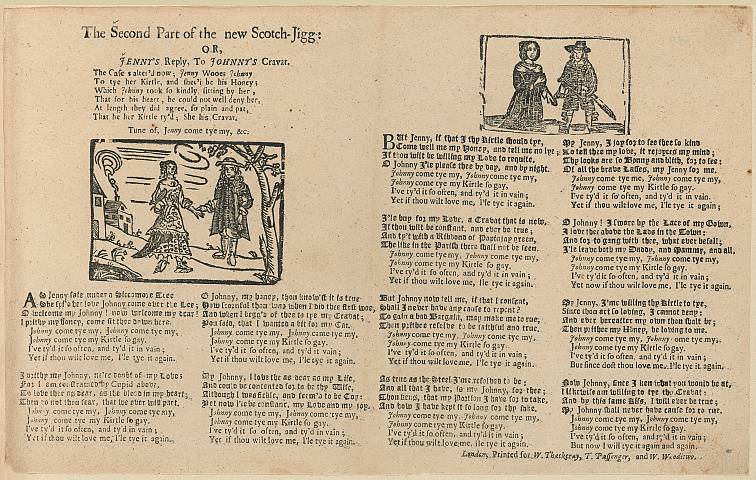 The Second Part of the new Scotch-Jigg:
OR,
JENNY'S Reply, To JOHNNY'S Cravat.
The Case s alter'd now; Jenny Wooes Johnny
To tye her Kirtle, and shee'l be his Honey;
Which Johnny took so kindly, sitting by her,
That for his heart, he could not well deny her,
At length they did agree, so plain and pat,
That he her Kirtle ty'd; She his Cravat.
Tune of, Jenny come tye my, &c.
AS Jenny sate under a Siccamore Tree
She 'spy'd her love Johnny come over the Lee;
O welcome my Johnny! now welcome my dear!
I prithy my Honey, come sit thee down here.
Johnny come tye my, Johnny come tye my,
Johnny come tye my Kirtle so gay.
I've ty'd it so often, and ty'd it in vain;
Yet if thou wilt love me, I'le tye it again.
I prithy my Johnny, ne're doubt of my Love;
For I am constrained by Cupid above,
To love thee as dear, as the blood in my heart;
Then do not thou fear, that we ever will part.
Johnny come tye my, Johnny come tye my,
Johnny come tye my Kirtle so gay.
I've ty'd it so often, and ty'd in vain;
Yet if thou wilt love me, I'le tye it again.
O Johnny, my honey, thou know'st it is true
How scornful thou was when I did thee first woe,
And when I begg'd of thee to tye my Cravat;
You said, that I wanted a bit for my Cat.
Johnny come tye my, Johnny come tye my,
Johnny come tye my Kirtle so gay.
I've ty'd it so often, and ty'd it in vain;
Yet if thou wilt love me, I'le tye it again.
My Johnny, I love thee as dear as my Life,
And could be contented for to be thy Wife,
Although I was fickle, and seem'd to be Coy:
Yet now I'le be constant, my Love and my joy.
Johnny come tye my, Johnny come tye my,
Johnny come tye my Kirtle so gay.
I've ty'd it so often, and ty'd it in vain;
Yet if thou wilt love me, I'le tye it again.
BUt Jenny, if that I thy Kirtle should tye,
Come tell me my Honey, and tell me no lye;
If thou wilt be willing my Love to requite,
O Johnny I'le please thee by day, and by night.
Johnny come tye my, Johnny come tye my,
Johnny come tye my Kirtle so gay.
I've ty'd it so often, and ty'd it in vain;
Yet if thou wilt love me, I'le tye it again.
I'le buy for my Love, a Cravat that is new,
If thou wilt be constant, and ever be true;
And ty't with a Ribbond of Popinjay green,
The like in the Parish there shall not be seen.
Johnny come tye my, Johnny come tye my,
Johnny come tye my Kirtle so gay.
I've ty'd it so often, and ty'd it in vain;
Yet if thou wilt love me, I'le tye it again.
But Johnny now tell me, if that I consent,
Shall I never have any cause to repent.
To gain a bad Bargain, may make me to rue;
Then prithee resolve to be faithful and true.
Johnny come tye my, Johnny come tye my,
Johnny come tye my Kirtle so gay.
I've ty'd it so often, and ty'd it in vain;
Yet if thou wilt love me, I'le tye it again.
As true as the Steel I'me resolved to be;
And all that I have, is my Johnny, for thee;
Thou kens, that my Portion I have for to take,
And how I have kept it so long for thy sake.
Johnny come tye my, Johnny come tye my,
Johnny come tye my Kirtle so gay.
I've ty'd it so often, and ty'd it in vain;
Yet if thou wilt love me, I'le tye it again.
My Jenny, I joy for to see thee so kind
To tell thee my love, it rejoyces my mind;
Thy looks are so bonny and blith, for to see:
Of all the brave Lasses, my Jenny for me.
Johnny come tye me, Johnny come tye my,
Johnny come tye my Kirtle so gay.
I've ty'd it so often, and ty'd it in vain;
Yet if thou wilt love me, I'le tye it again;
O Johnny! I swore by the Lace of my Gown,
I love thee above the Lads in the Town:
And for to gang with thee, what ever befall;
I'le leave both my Daddy, and Mammy, and all.
Johnny come tye my, Johnny come tye my,
Johnny come tye my Kirtle so gay:
I've ty'd it so often, and ty'd it in vain;
Yet now if thou wilt love me, I'le tye it again;
My Jenny, I'me willing thy Kirtle to tye,
Since thou art so loving, I cannot deny:
And ever hereafter my own thou shalt be;
Then prithee my Honey, be loving to me.
Johnny come tye my, Johnny come tye my,
Johnny come tye my Kirtle so gay:
I've ty'd it so often, and ty'd it in vain;
But since dost thou love me, I'le tye it again.
Now Johnny, since I ken what you would be at,
I likewise am willing to tye thy Cravat;
And by this same Kiss, I will ever be true;
My Johnny shall never have cause for to rue.
Johnny come tye my, Johnny come tye my,
Johnny come tye my Kirtle so gay.
I've ty'd it so often, and ty'd it in vain;
But now I will tye it again and again.
London, Printed for W. Thackeray, T. Passenger, and W. Whitwood.